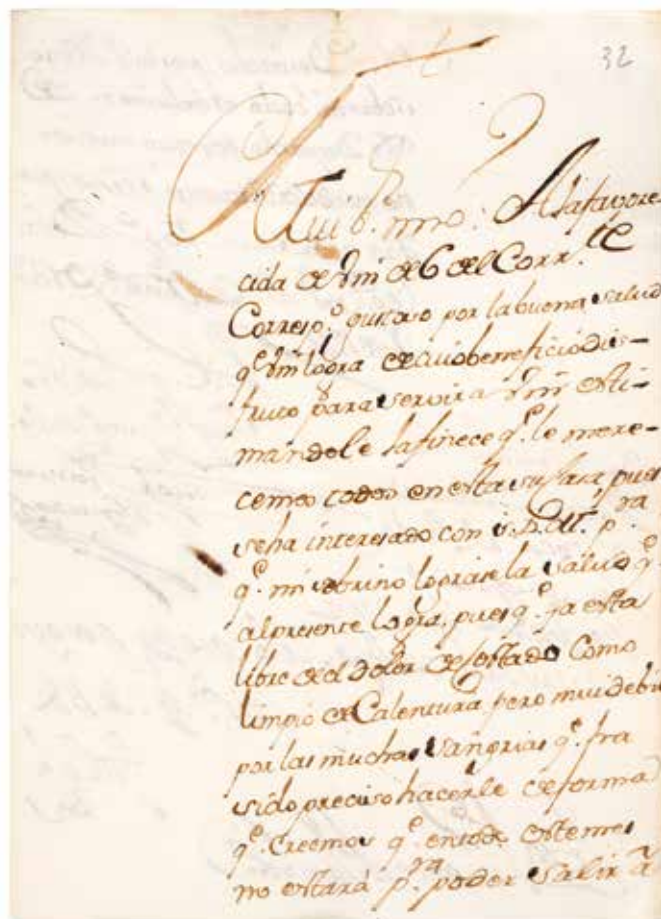 32
Mui S.r mio: A la favore-
cida de Vm de 6 del Corr.te
Correspo.º gustoso por la buena salud
q.e Vm logra de cuio beneficio dis-
fruto para servir a Vm esti-
mandole la fineza q.e le mere-
cemos todos en esta su Casa, pues
se ha interesado con S. D. M. p.ra
q.e mi sobrino lograse la salud q.e
al presente logra, pues q.e ya esta
libre de el dolor de costado como
limpio de Calentura, pero mui debil
por las muchas sangrias q.e ha
sido preciso hacerle de forma
q.e Creemos q.e en todo este mes
no estará p.ra poder salir à